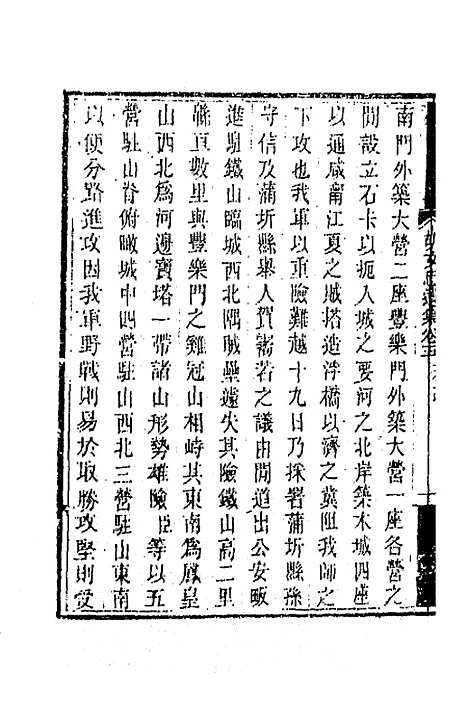 南門外築大營二座豐樂門外築大營一座各營之
間設立石卡以扼入城之要河之北岸築木城四座
以通咸甯江夏之賊塔造浮橋以濟之冀阻我師之
下攻也我軍以重險難越十九日乃採署蒲圻縣孫
守信及蒲圻縣舉人賀霱若之議由間道出公安畈
進駐鐵山臨城西北隅賊壘遠失其險鐵山高二里
緜亘數里與豐樂門之雞冠山相峙其東南為鳳皇
山西北為河邊寶塔一帶諸山形勢雄險臣等以五
營駐山脊俯瞰城中四營駐山西北三營駐山東南
以便分路進攻因我軍野戰則易於取勝攻堅則受